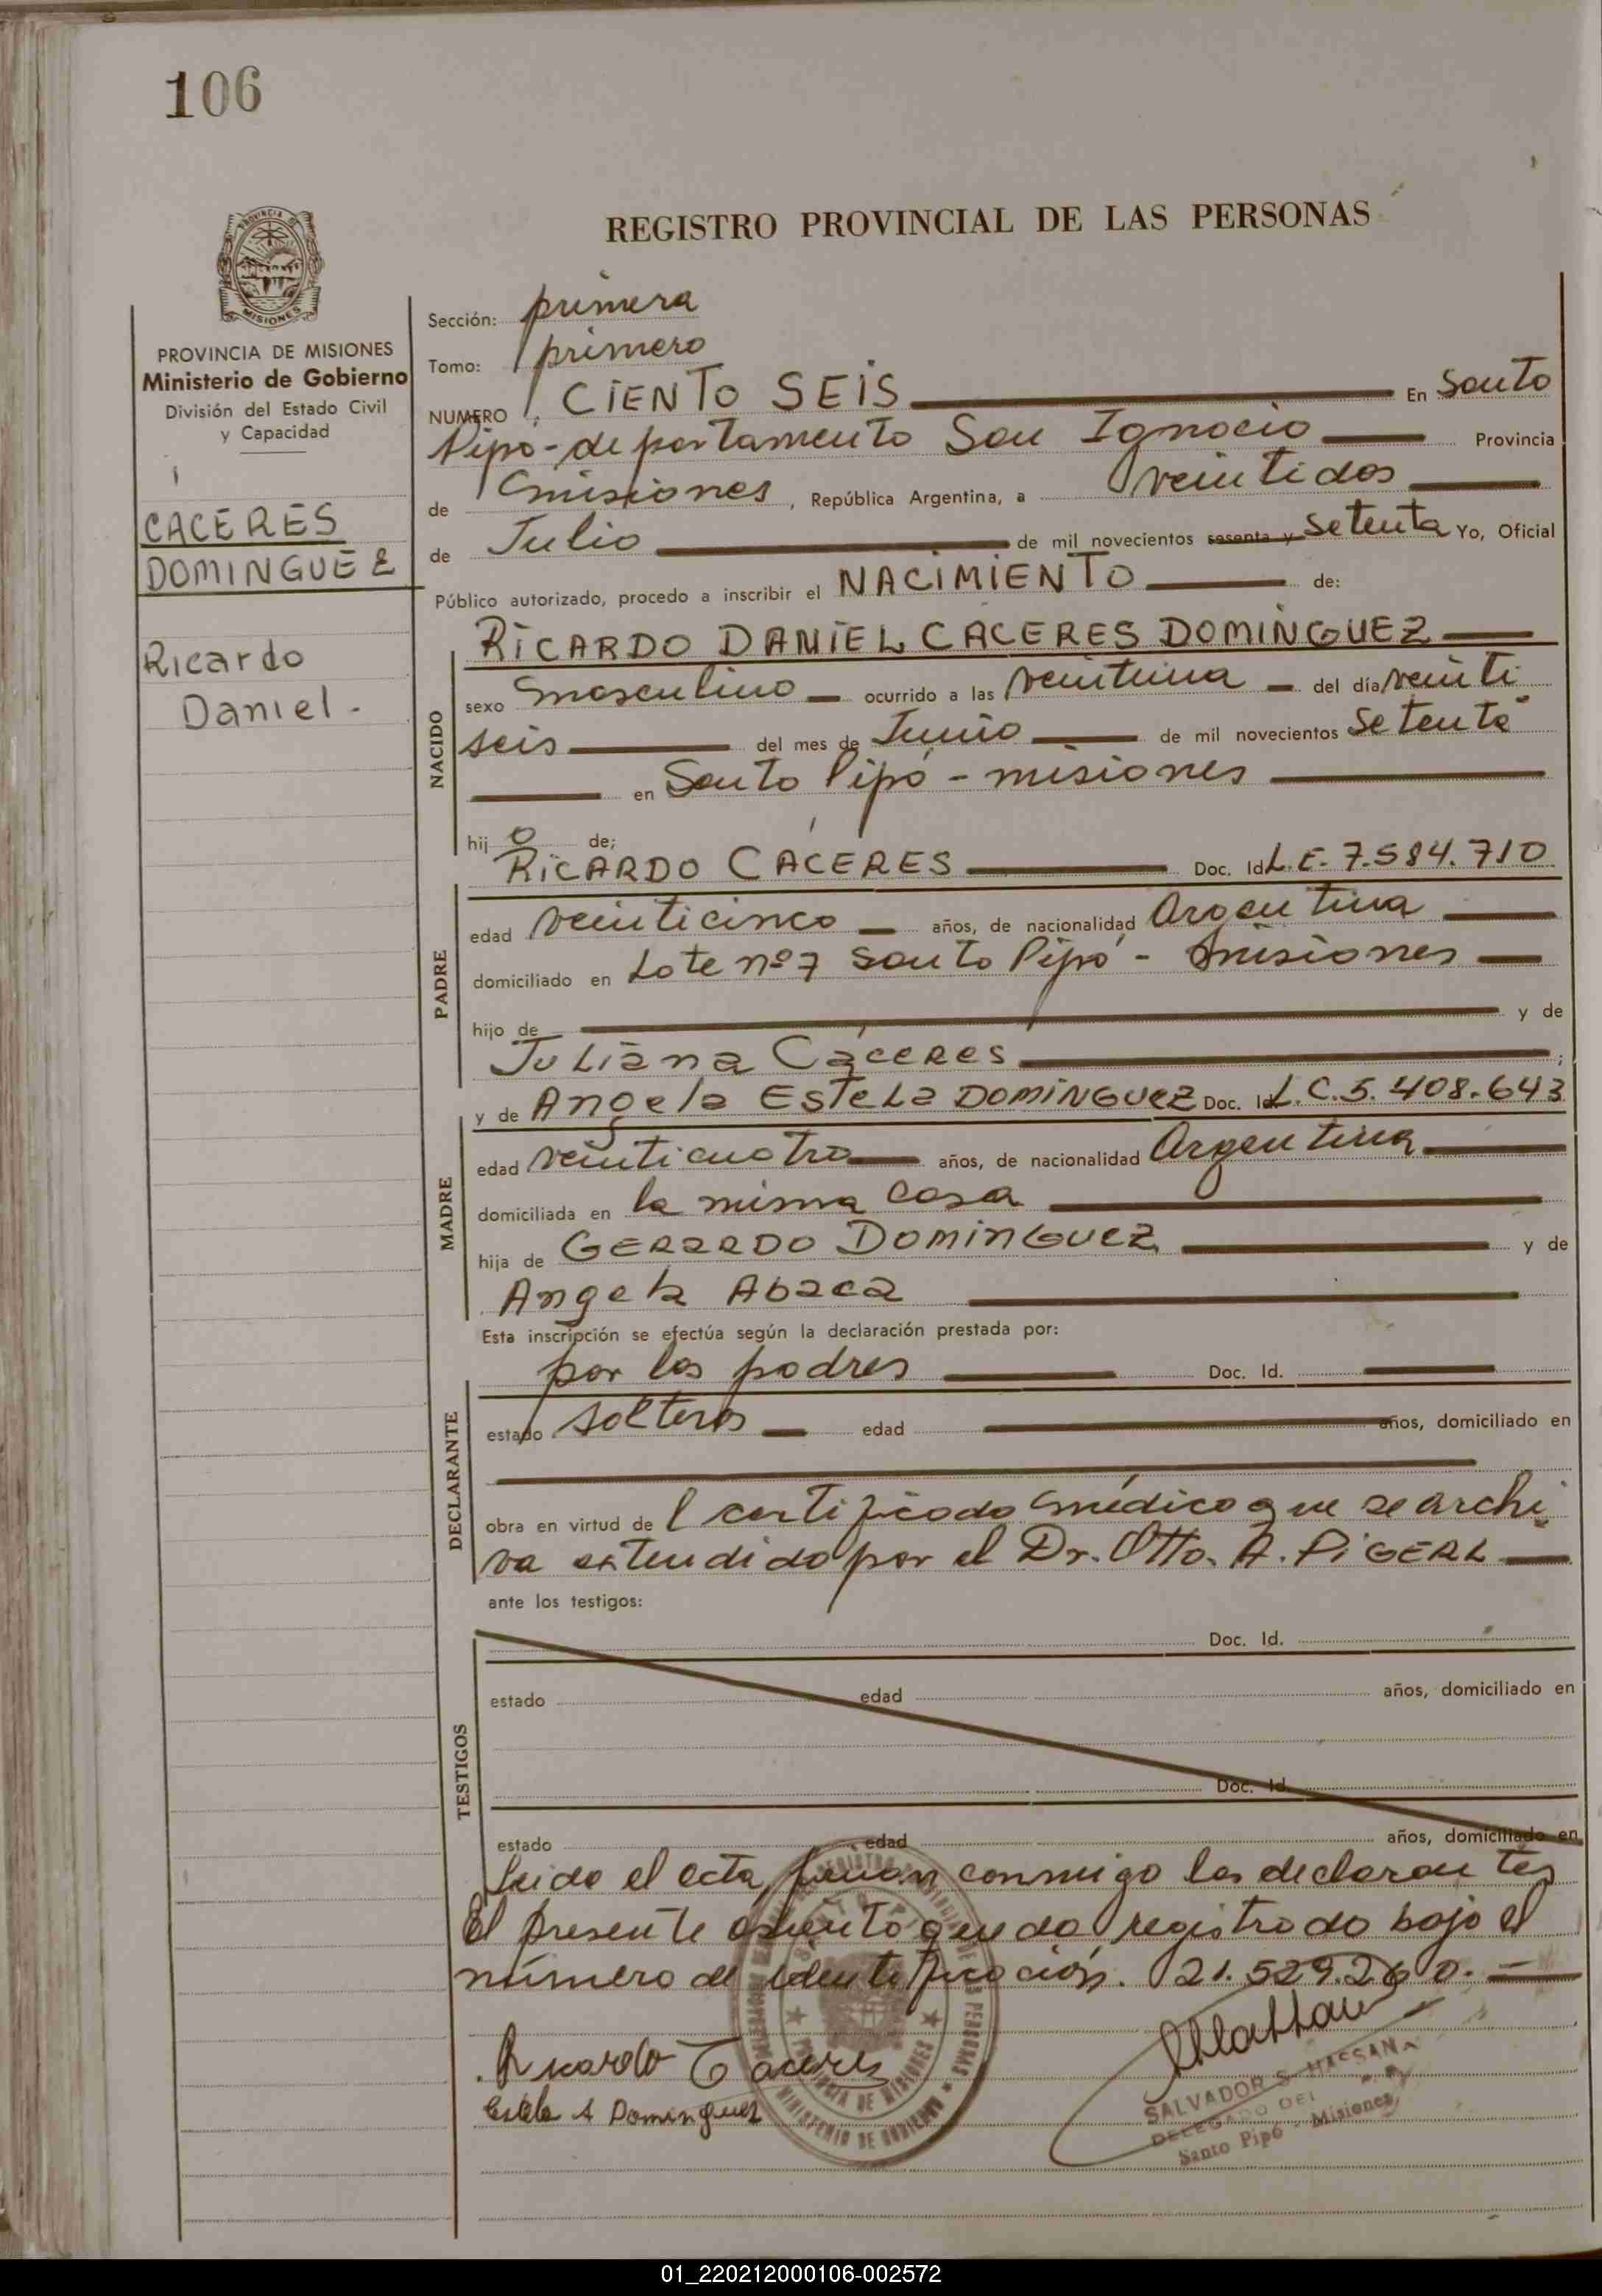 106
REGISTRO PROVINCIAL DE LAS PERSONAS
PROVINCIA DE MISIONES
Ministerio de Gobierno
División del Estado Civil
y Capacidad
CACERES
DOMINGUEZ
Ricardo
Daniel.-
Sección: primera
Tomo: primero
NUMERO CIENTO SEIS En Santo
Pipó - departamento San Ignacio Provincia
de misiones, República Argentina, a veintidos
de Julio de mil novecientos sesenta y Setenta Yo, Oficial
Público autorizado, procedo a inscribir el NACIMIENTO de:
NACIDO
RICARDO DANIEL CACERES DOMINGUEZ
sexo masculino ocurrido a las veintiuna del día veinti
seis del mes de Junio de mil novecientos Setenta
en Santo Pipó - misiones
hij o de;
PADRE
RICARDO CÁCERES Doc. Id L.E. 7.584.710
edad veinticinco años, de nacionalidad Argentina
domiciliado en Lote nº 7 Santo Pipó - misiones
hijo de y de
Juliana Cáceres ;
MADRE
y de Angela Estela DOMINGUEZ Doc. Id. L.C. 5.408.643
edad veinticuatro años, de nacionalidad Argentina
domiciliada en la misma casa
hija de GERARDO DOMINGUEZ y de
Angela Abaca
Esta inscripción se efectúa según la declaración prestada por:
DECLARANTE
por los padres Doc. Id.
estado solteros edad años, domiciliado en
obra en virtud de l certificado médico que se archi
va extendido por el Dr. Otto. A. PIGERL
ante los testigos:
TESTIGOS
Doc. Id.
estado edad años, domiciliado en
Doc. Id.
estado edad años, domiciliado en
Leido el acta, firman conmigo los declarantes
El presente asiento queda registrado bajo el
número de identificación. 21.529.260.-
Ricardo Caceres
Estela A Dominguez
SALVADOR S. MASSANA
DELEGADO DEL
Santo Pipó - Misiones
PROVINCIA DE MISIONES
MINISTERIO DE GOBIERNO
01_220212000106-002572